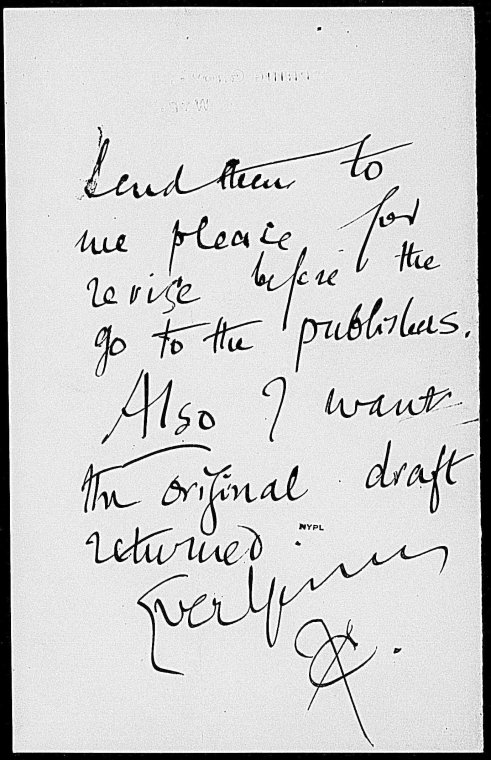 Send them to
me please for
revise before the
go to the publishers.
Also I want
the original draft
returned.
NYPL
Ever Yours
K.